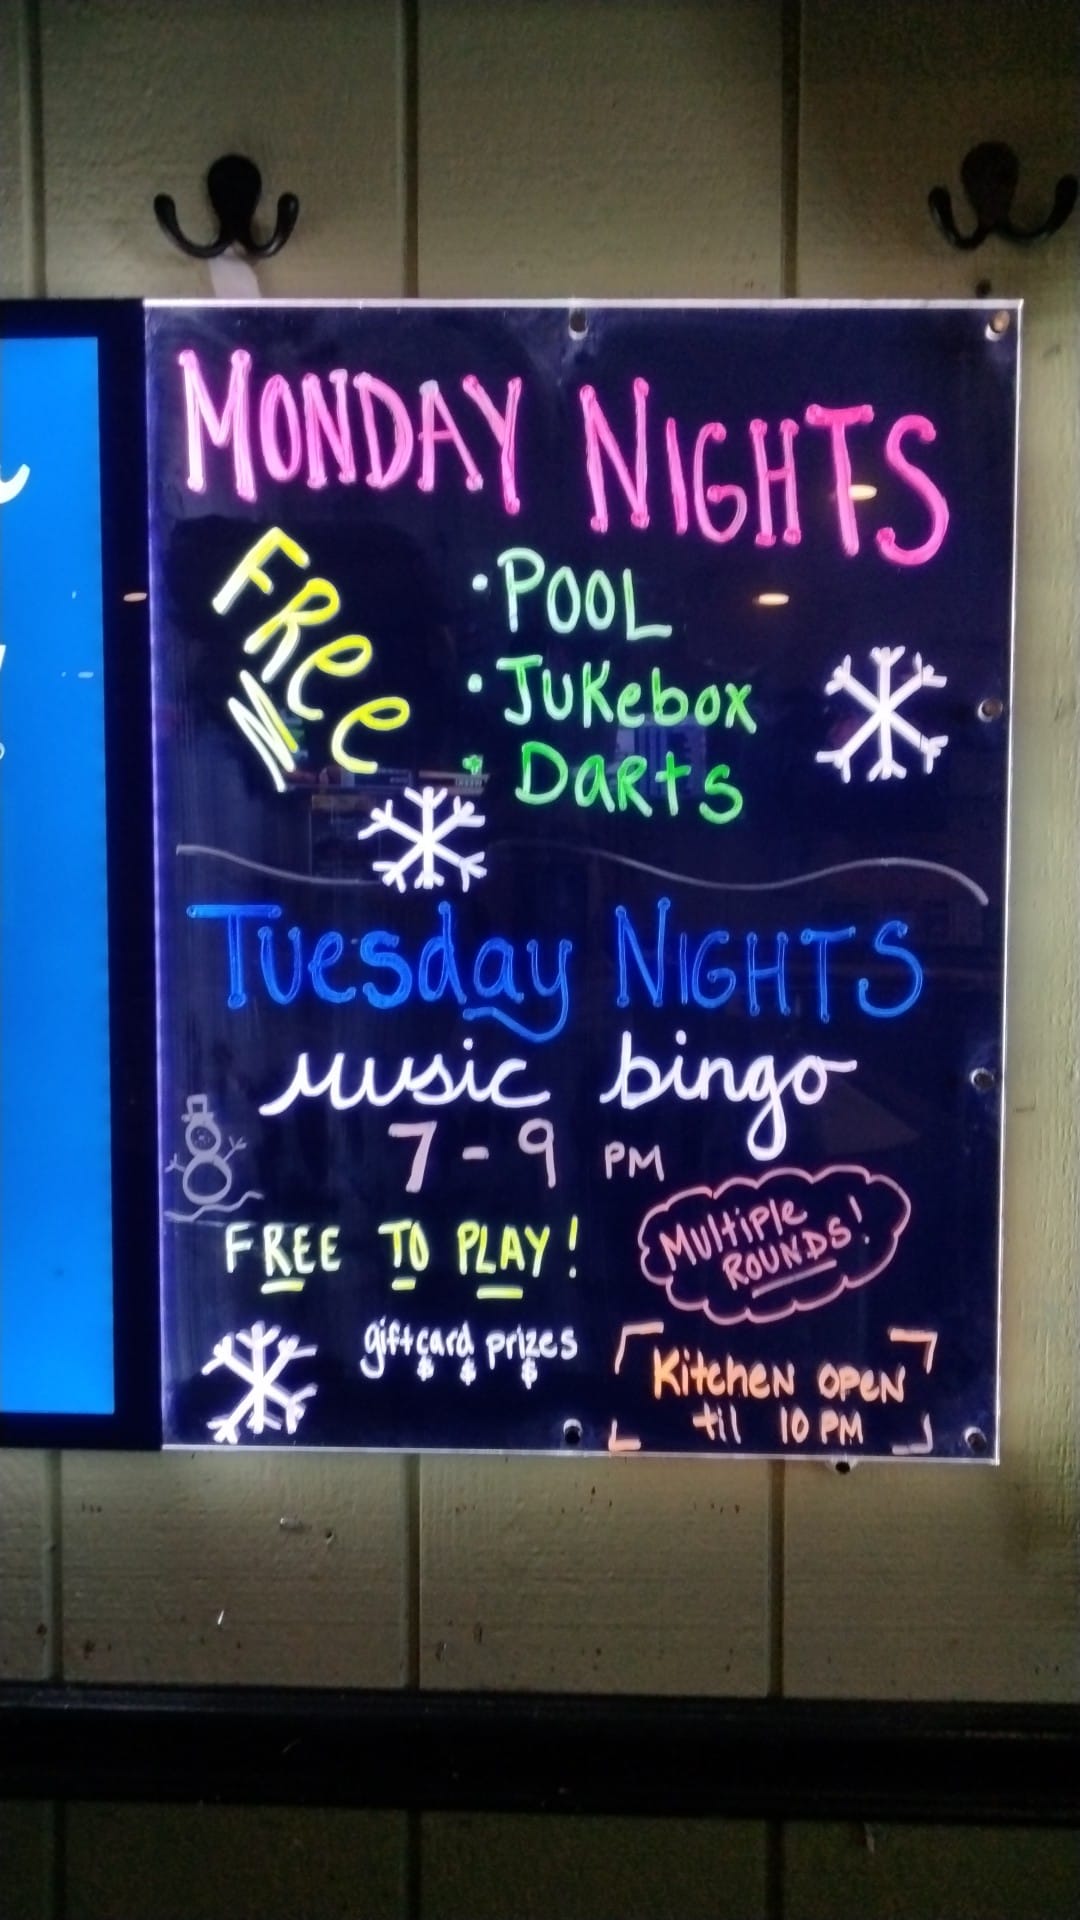 MONDAY NIGHTS
FRee
• POOL
• JUKebox
• DARts
Tuesday NIGHTS
music bingo
7-9 PM
FREE TO PLAY!
MULtiPle
ROUNDS!
giftcard prizes
$ $ $
KitcHeN OPeN
til 10 PM